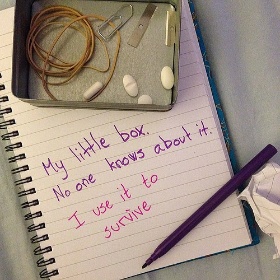 My little box.
No one knows about it.
I use it to
survive